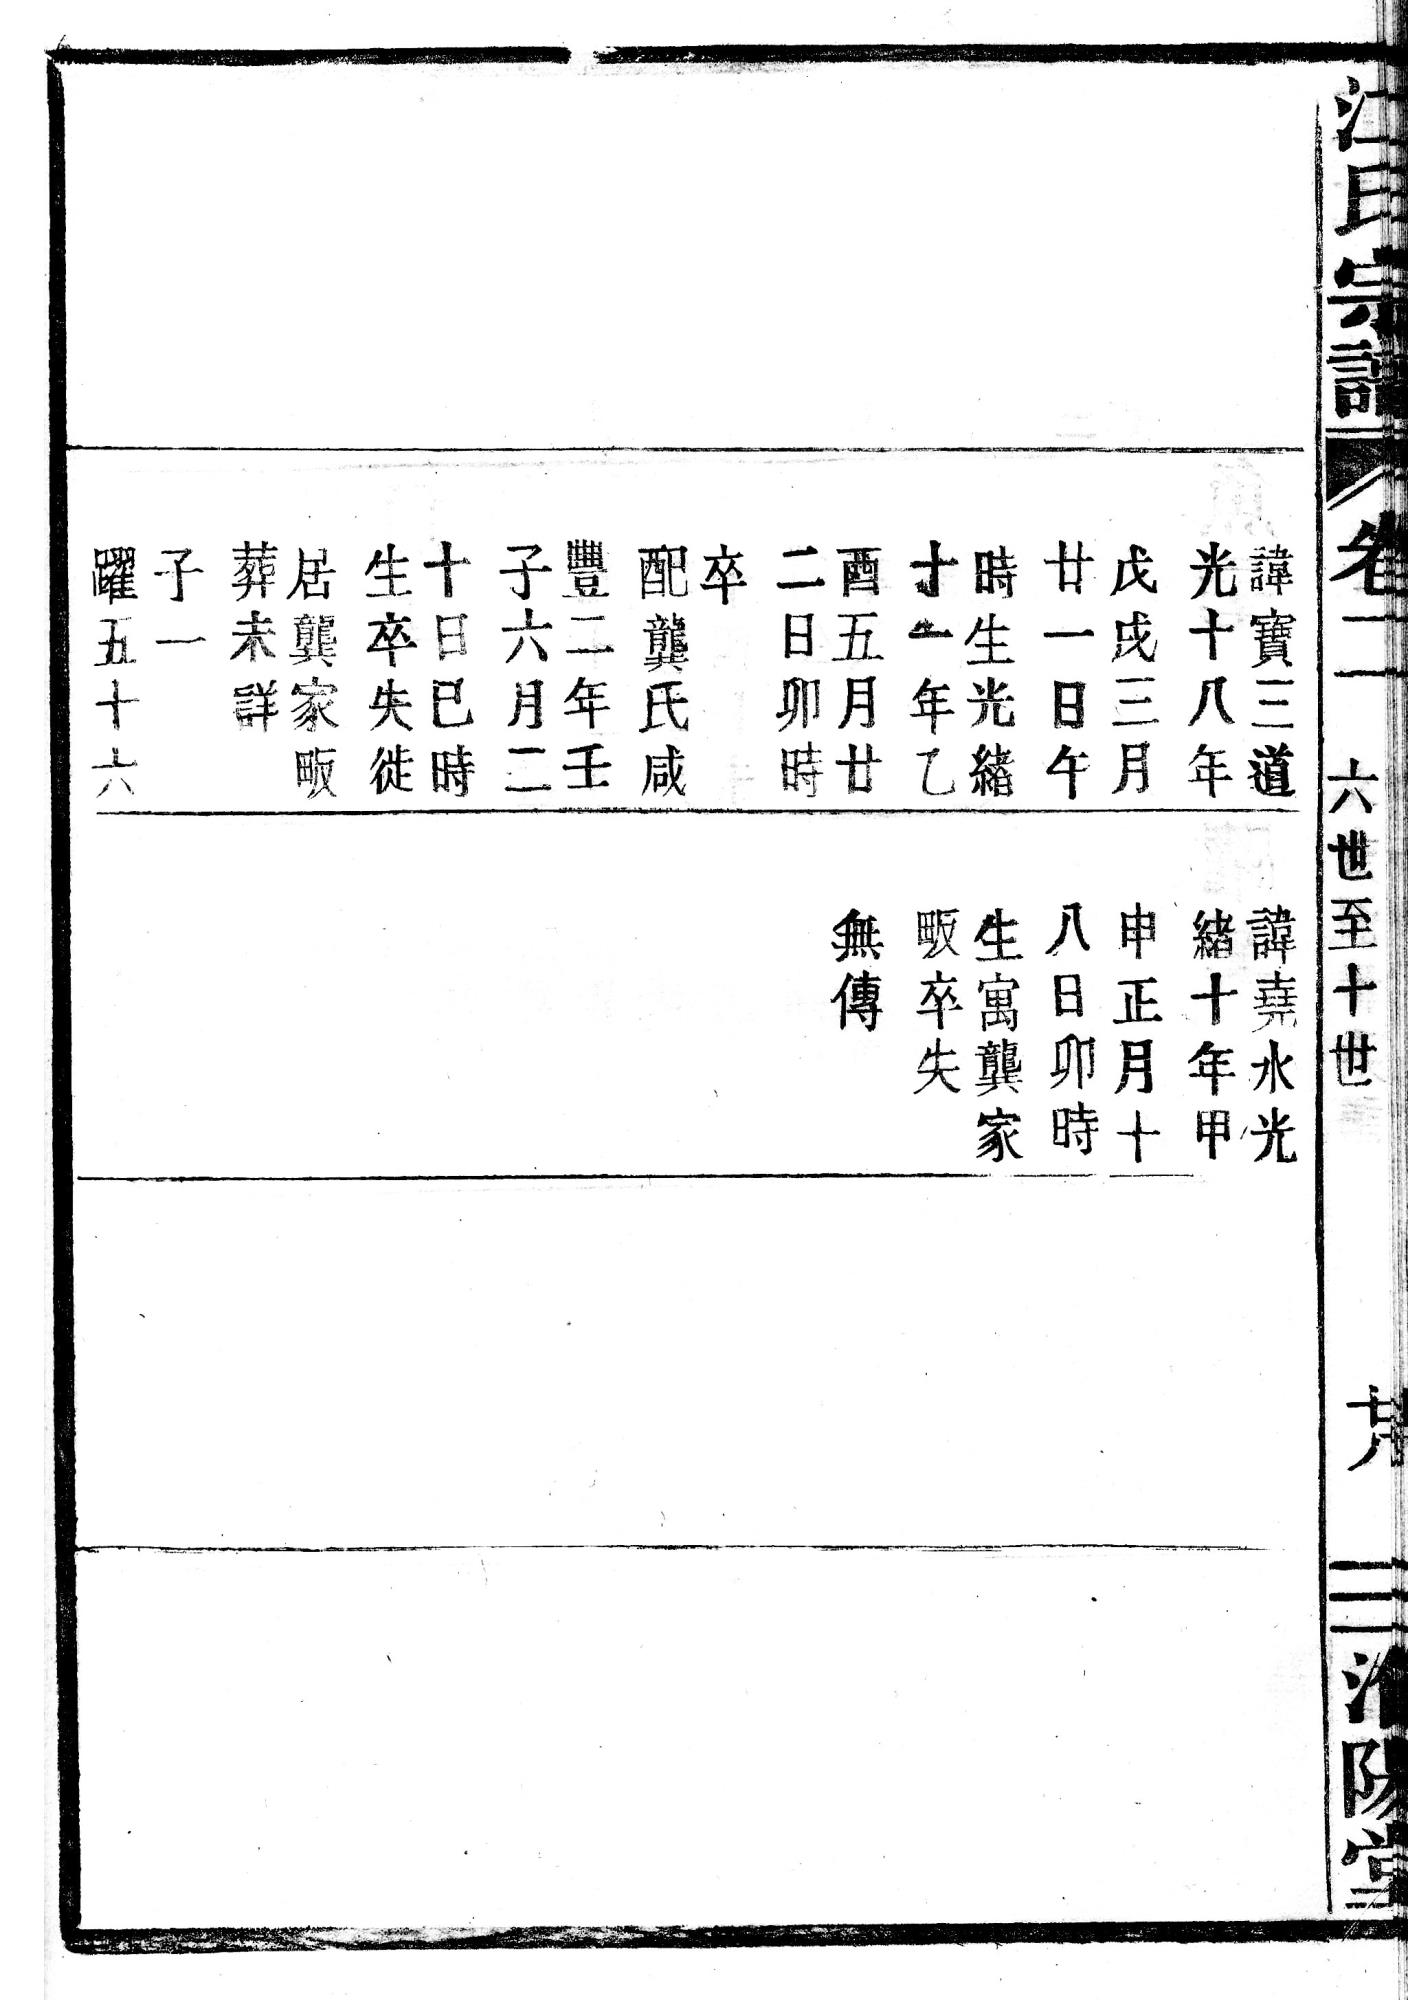 江氏宗譜
卷二
六世至十世
淮陽堂
諱寶三道
光十八年
戊戌三月
廿一日午
時生光緒
十一年乙
酉五月廿
二日卯時
卒
配龔氏咸
豐二年壬
子六月二
十日巳時
生卒失徙
居龔家畈
葬未詳
子一
躍五十六
諱堯水光
緒十年甲
申正月十
八日卯時
生寓龔家
畈卒失
無傳